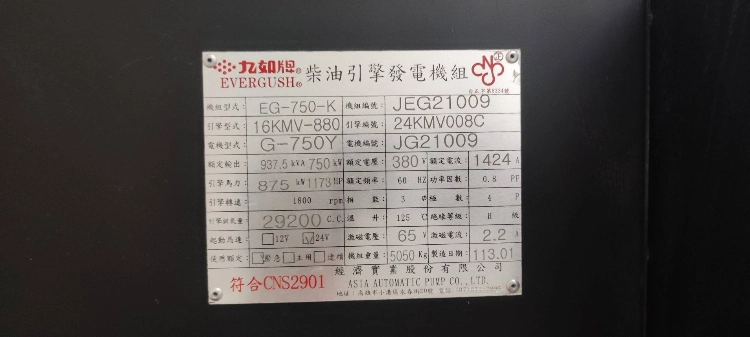 九如牌® EVERGUSH® 柴油引擎發電機組
台正字第8334號
機組型式: EG-750-K 機組編號: JEG21009
引擎型式: 16KMV-880 引擎編號: 24KMV008C
電機型式: G-750Y 電機編號: JG21009
額定輸出: 937.5 kVA 750 kW 額定電壓: 380 V 額定電流: 1424 A
引擎馬力: 875 kW 1173 HP 額定頻率: 60 HZ 功率因數: 0.8 PF
引擎轉速: 1800 rpm 相數: 3 ø 極數: 4 P
引擎排氣量: 29200 C.C. 溫升: 125 ℃ 絕緣等級: H 級
起動馬達: 12V 24V 激磁電壓: 65 V 激磁電流: 2.2 A
使用額定: 緊急 主用 連續 機組重量: 5050 Kg 製造日期: 113.01
符合CNS2901
經濟實業股份有限公司
ASIA AUTOMATIC PUMP CO., LTD.